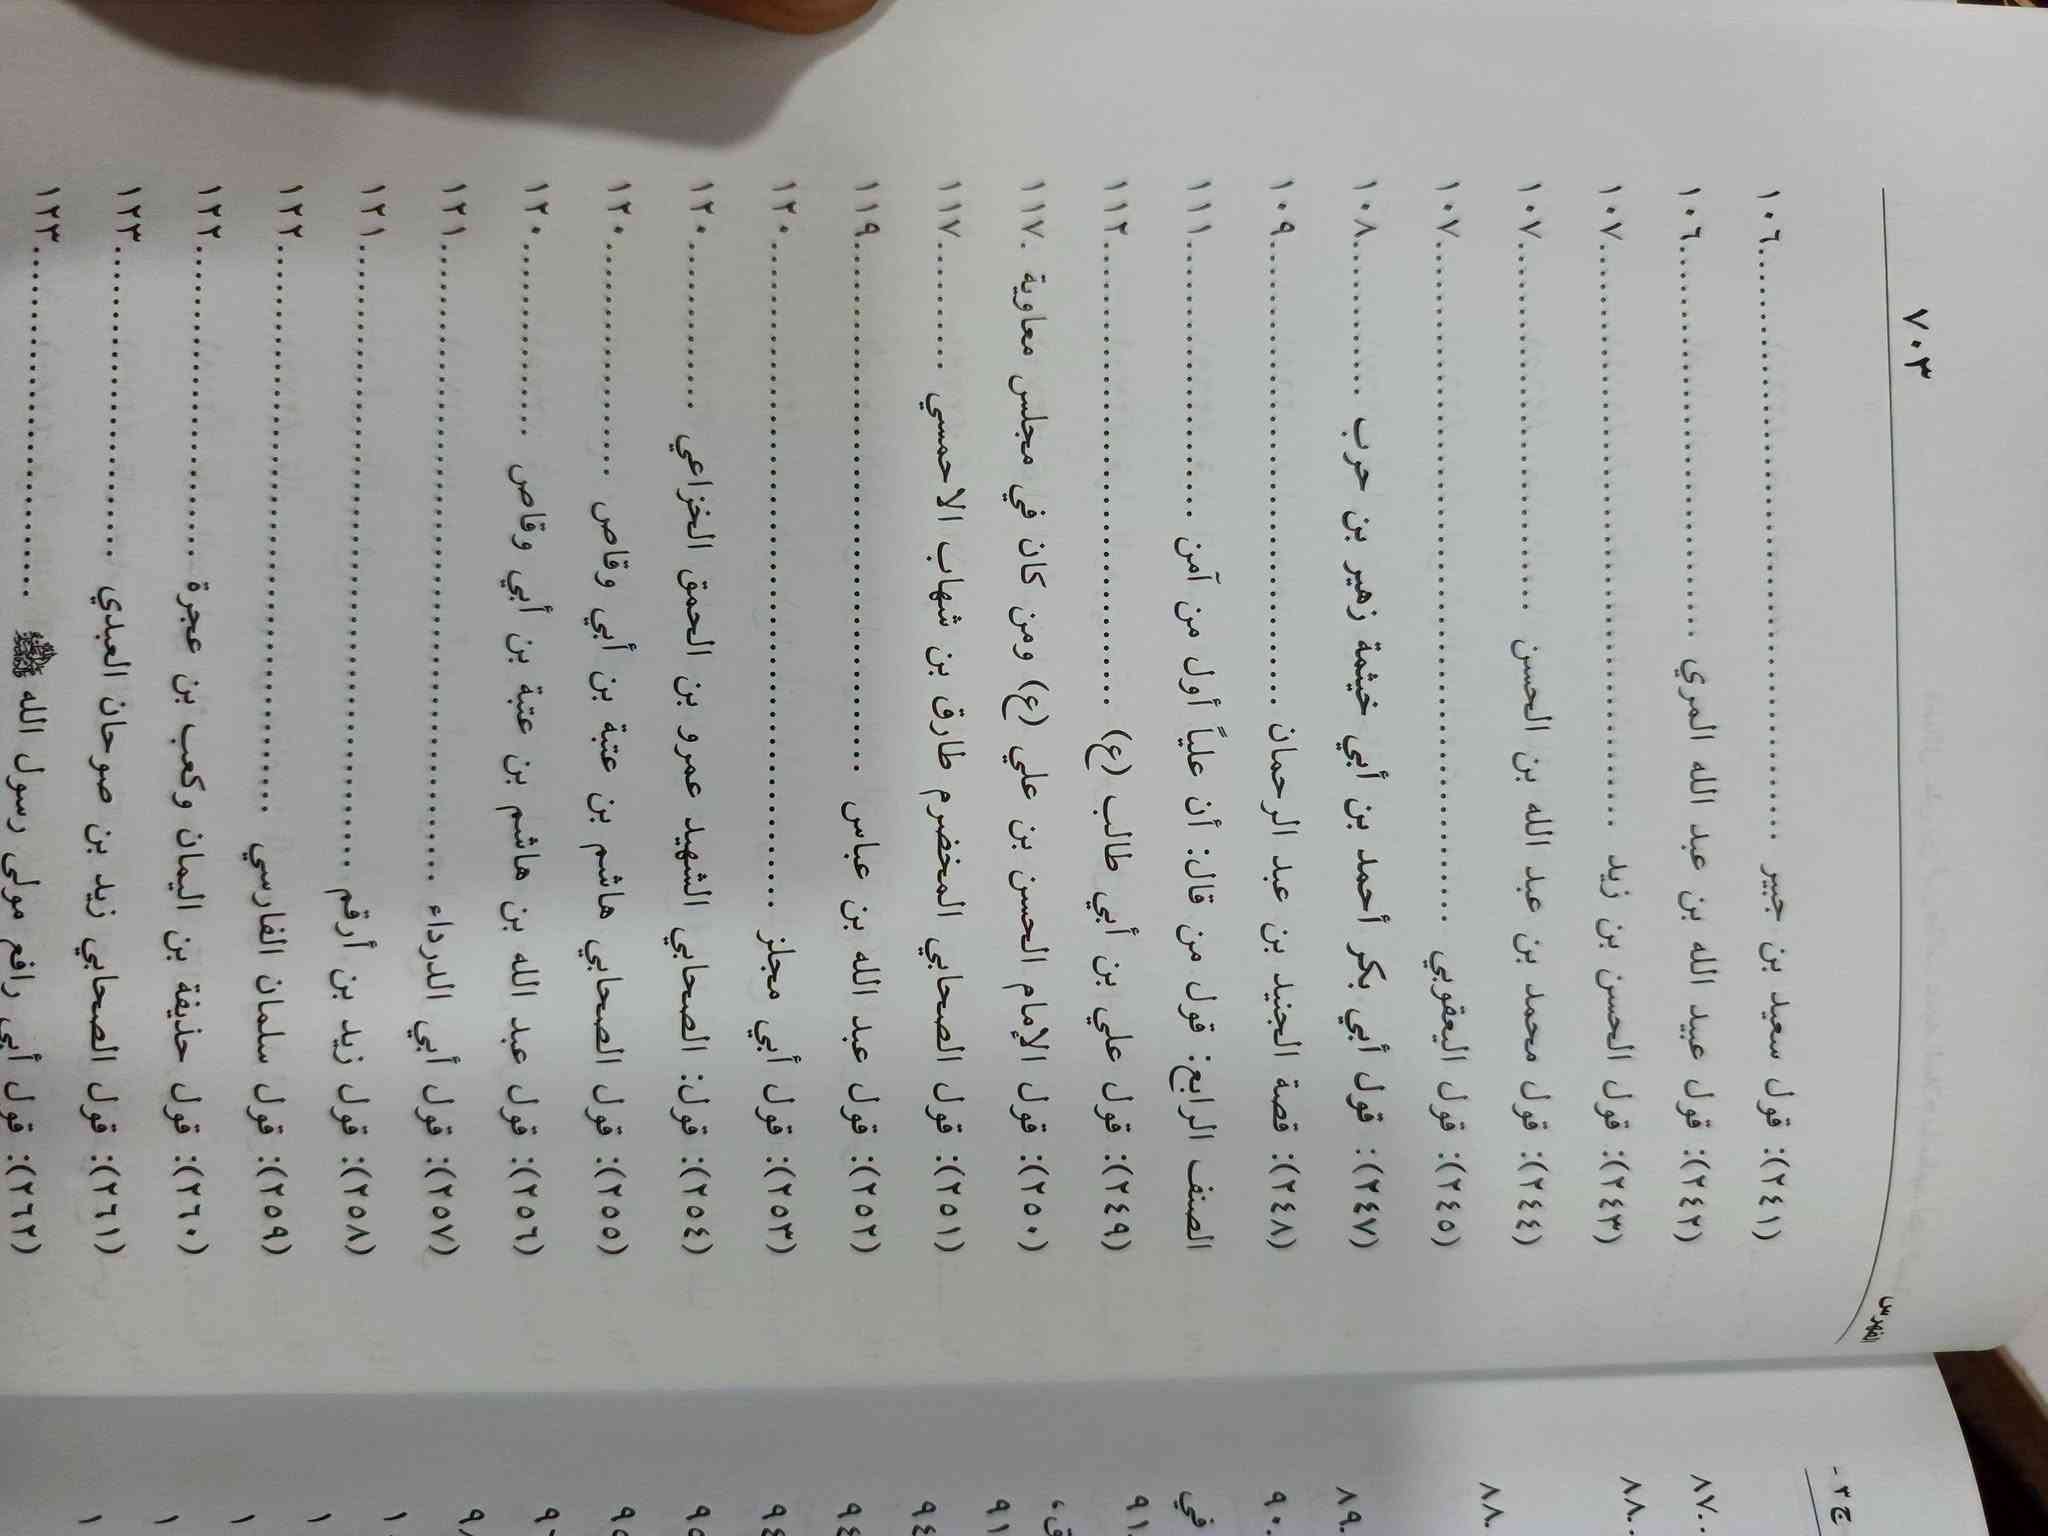 الفهرس ٧٠٣
(٢٤١): قول سعيد بن جبير ........ ١٠٦
(٢٤٢): قول عبيد الله بن عبد الله المري ........ ١٠٦
(٢٤٣): قول الحسن بن زيد ........ ١٠٧
(٢٤٤): قول محمد بن عبد الله بن الحسن ........ ١٠٧
(٢٤٥): قول اليعقوبي ........ ١٠٧
(٢٤٧): قول أبي بكر أحمد بن أبي خيثمة زهير بن حرب ........ ١٠٨
(٢٤٨): قصة الجنيد بن عبد الرحمان ........ ١٠٩
الصنف الرابع: قول من قال: أن علياً أول من آمن ........ ١١١
(٢٤٩): قول علي بن أبي طالب (ع) ........ ١١٢
(٢٥٠): قول الإمام الحسن بن علي (ع) ومن كان في مجلس معاوية . ١١٧
(٢٥١): قول الصحابي المخضرم طارق بن شهاب الاحمسي ........ ١١٧
(٢٥٢): قول عبد الله بن عباس ........ ١١٩
(٢٥٣): قول أبي مجلز ........ ١٢٠
(٢٥٤): قول: الصحابي الشهيد عمرو بن الحمق الخزاعي ........ ١٢٠
(٢٥٥): قول الصحابي هاشم بن عتبة بن أبي وقاص ........ ١٢٠
(٢٥٦): قول عبد الله بن هاشم بن عتبة بن أبي وقاص ........ ١٢٠
(٢٥٧): قول أبي الدرداء ........ ١٢١
(٢٥٨): قول زيد بن أرقم ........ ١٢١
(٢٥٩): قول سلمان الفارسي ........ ١٢٢
(٢٦٠): قول حذيفة بن اليمان وكعب بن عجرة ........ ١٢٢
(٢٦١): قول الصحابي زيد بن صوحان العبدي ........ ١٢٣
(٢٦٢): قول أبي رافع مولى رسول الله ﷺ ........ ١٢٣
ج٣ -
٨٧
٨٨
٨٨
٨٩
٩٠
في
٩١
٩١
٩٤
٩٤